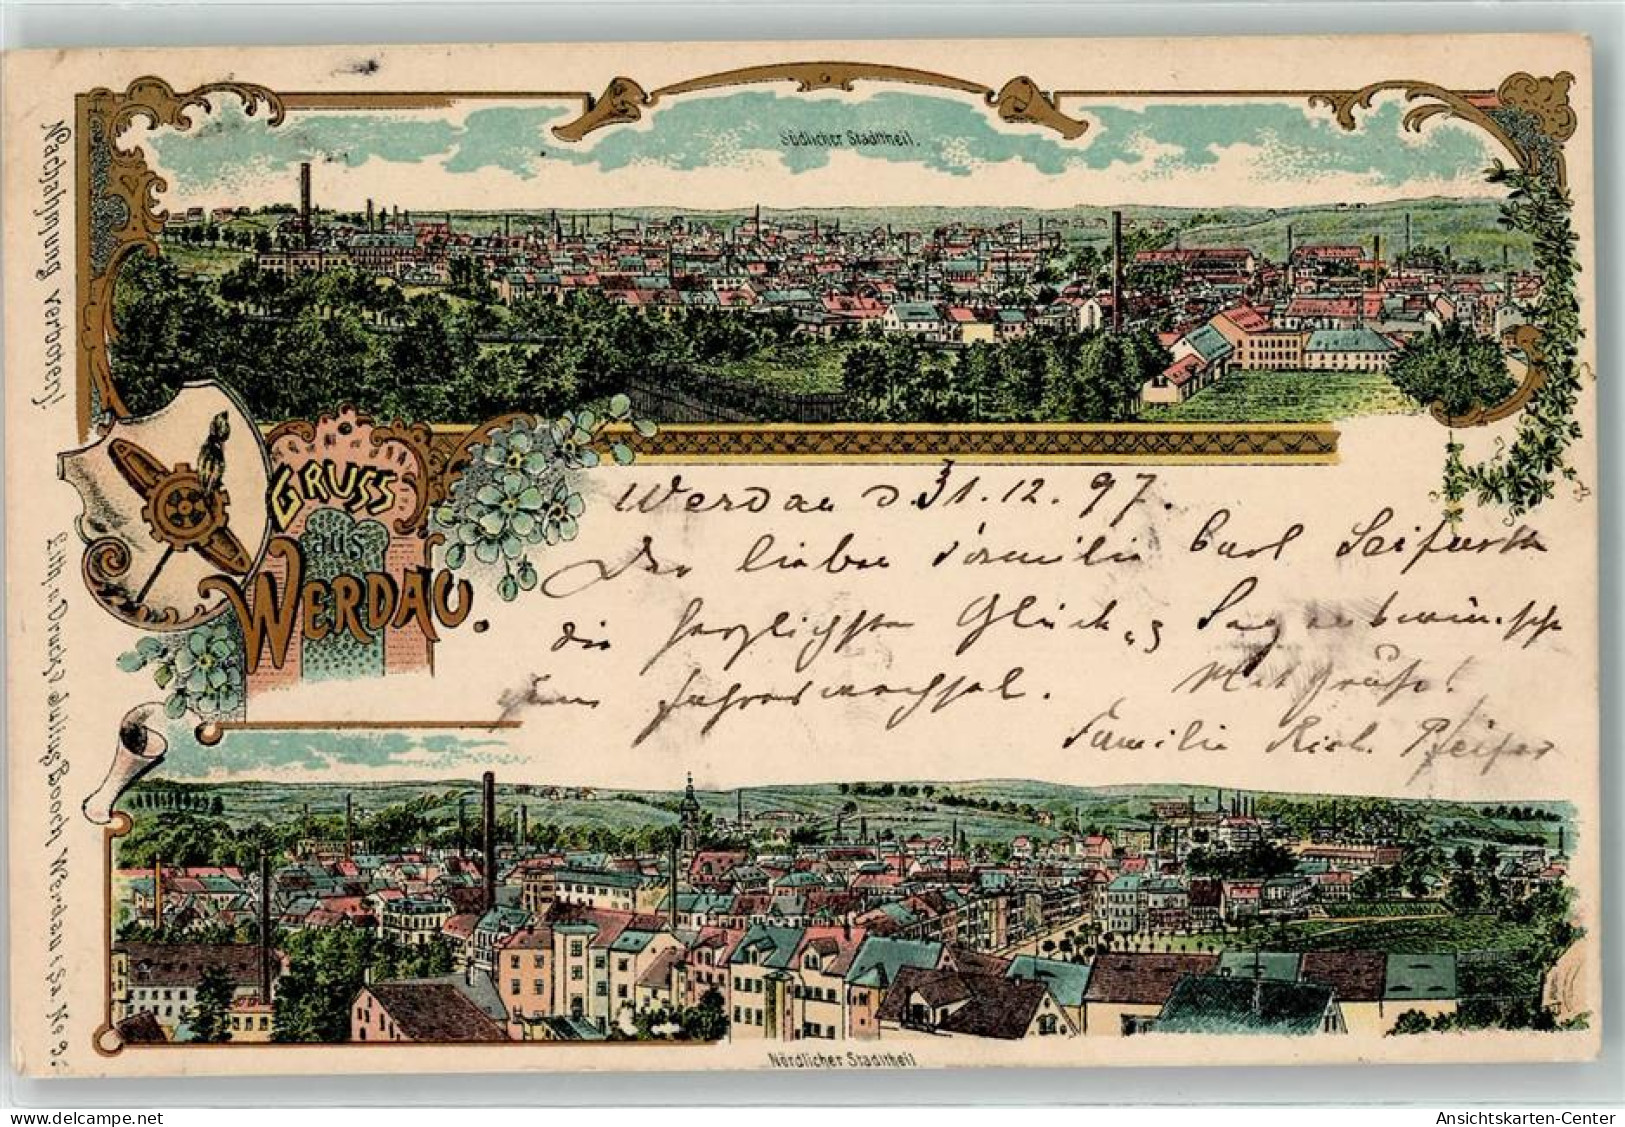 Südlicher Stadttheil.
Nachahmung verboten!
GRUSS
aus
WERDAU.
Werdau d. 31.12.97.
Der lieben Familie Carl Seifarth
die herzlichsten Glück u. Segenswünsche
zum Jahreswechsel. Mit Gruß!
Familie Rich. Pfeifer
Lith. u. Druck v. Werdau i. Sa. No
Nördlicher Stadttheil
Ansichtskarten-Center
www.delcampe.net